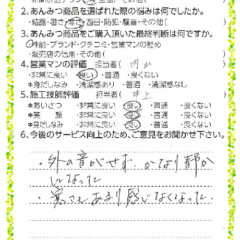 2.あんみつ商品を選ばれた際の悩みは何でしたか。
・結露・・寒さ・西日・防犯・騒音・その他(
3.あんみつ商品をご購入頂いた最終判断は何ですか。
・ブランド・クチコミ・営業マンの勧め
・販売店の信用・その他(
4.営業マンの評価 担当者(
・非常に良い・良い・普通・良くない
・身だしなみ ・清潔感あり ・普通 ・清潔感なし
5.施工技師評価 担当者( 井上
*あいさつ ・非常に良い ・良い ・普通 ・良くない
*笑顔 ・非常に良い ・良い ・普通 ・良くない
*身だしなみ ・非常に良い ・良い ・普通 ・良くない
6.今後のサービス向上のため、ご意見をお聞かせ下さい。
・外の音がせず、かなり静か
になった
・寒さもあまり感じなくなった